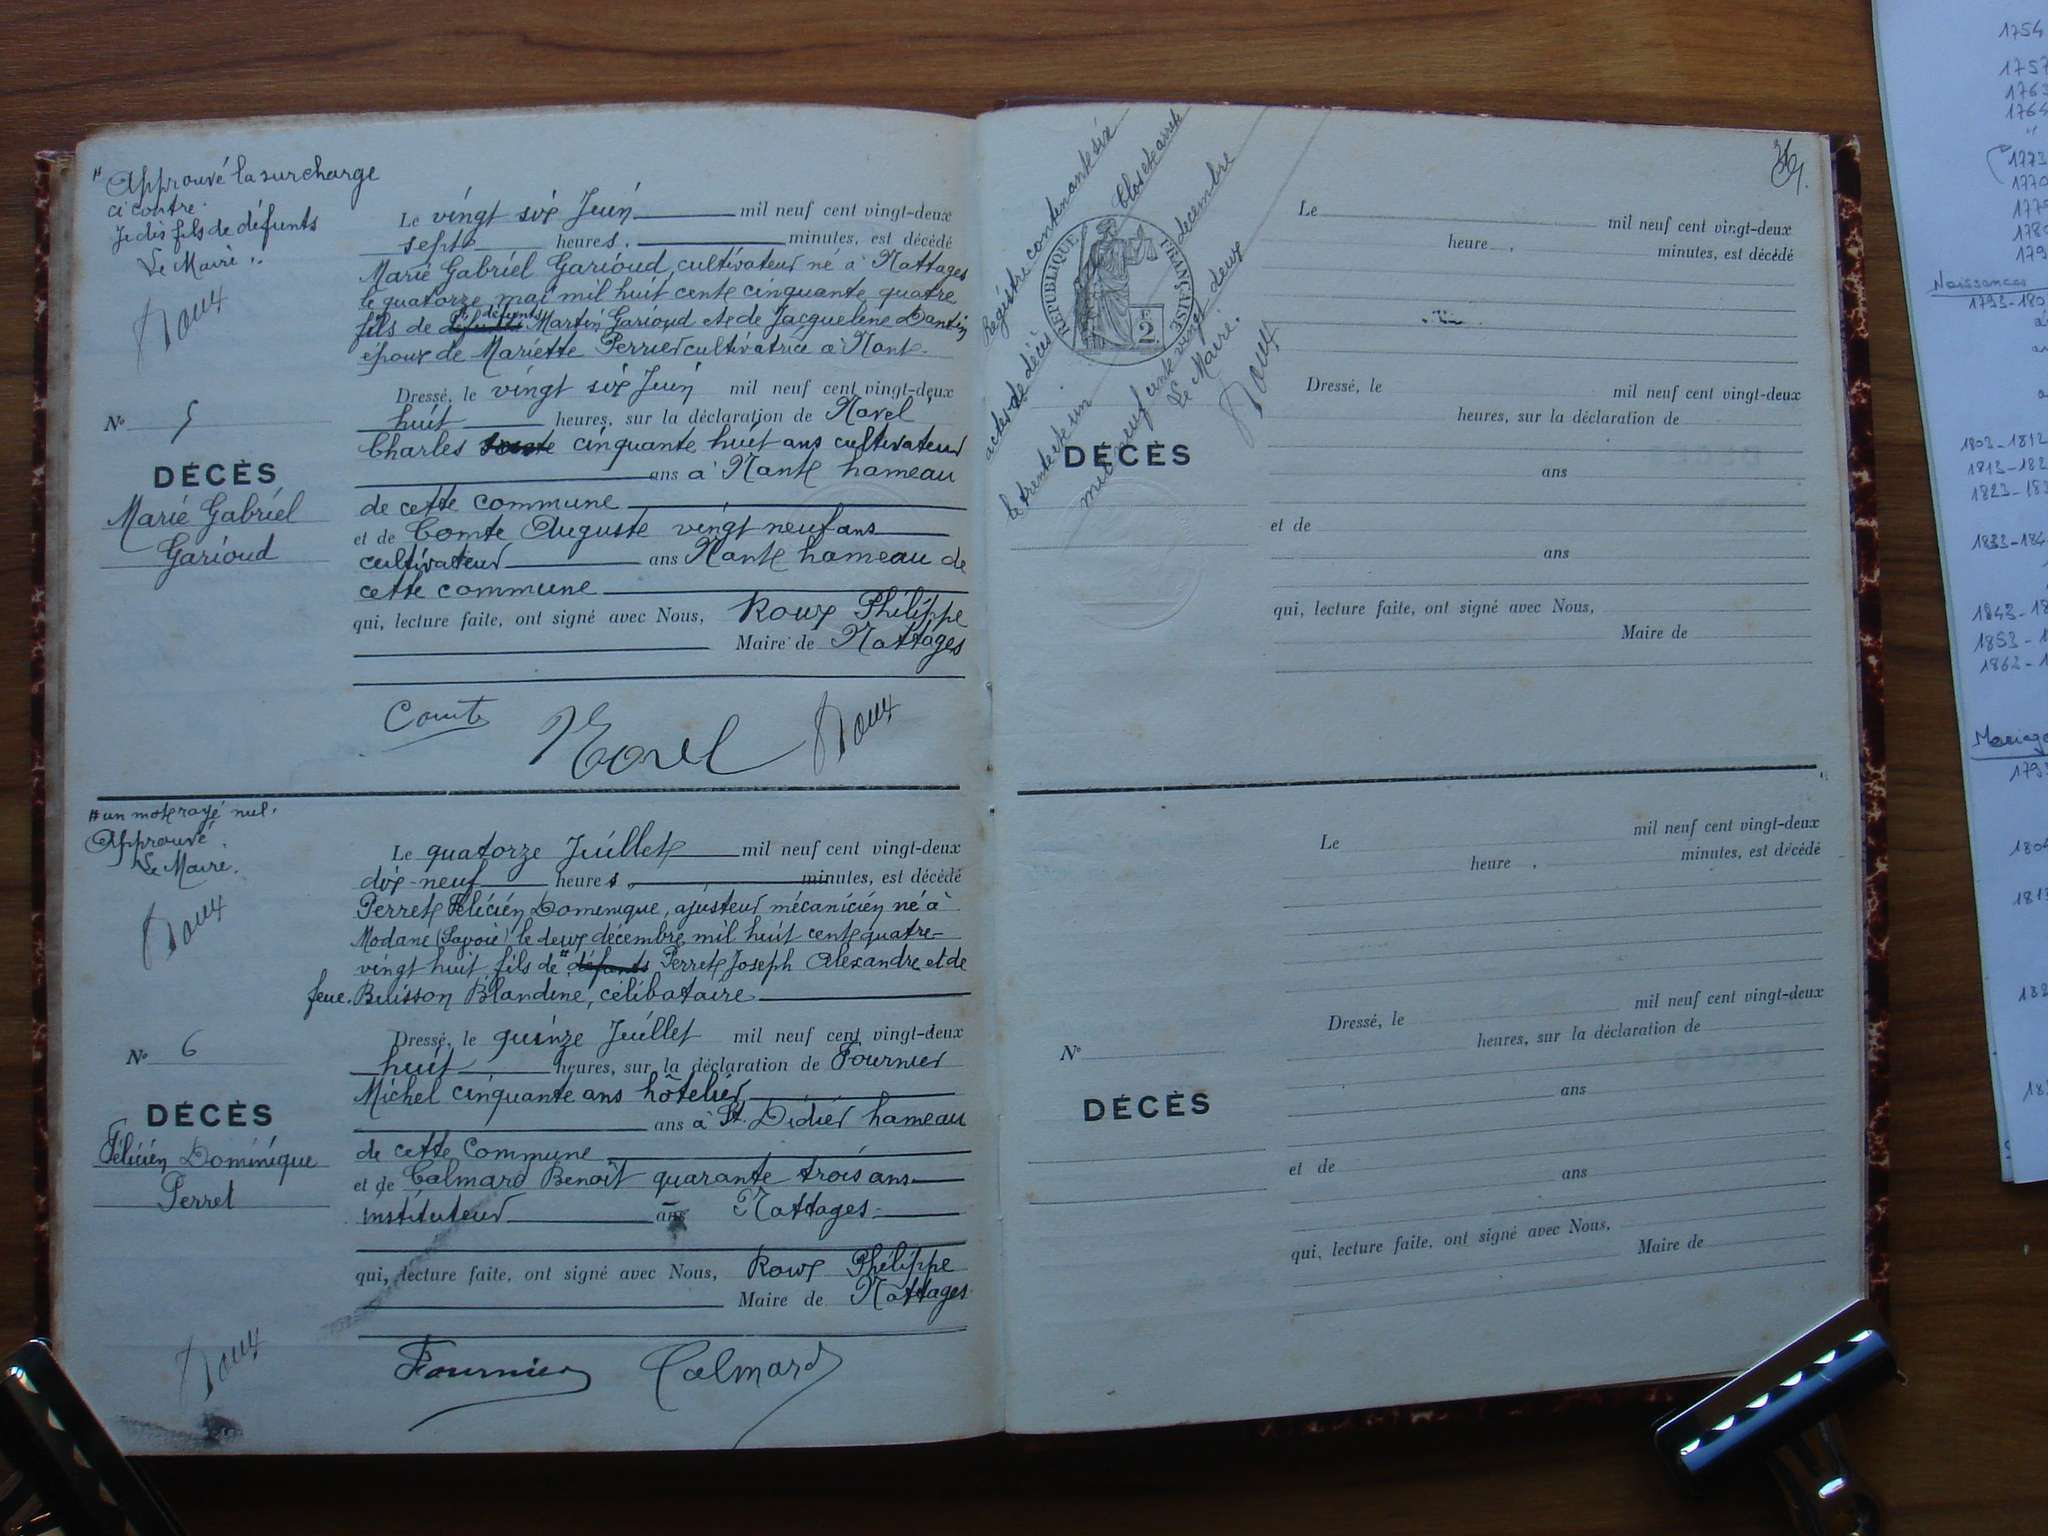 " Approuvé la surcharge
ci contre.
Je dis fils de défunts
Le Maire.
Roux
Le vingt six Juin mil neuf cent vingt-deux
septe heures, minutes, est décédé
Marie Gabriel Garioud, cultivateur né à Nattages
le quatorze mai mil huit cent cinquante quatre
fils de défunts Martin Garioud et de Jacqueline Dantin
époux de Mariette Perrier cultivatrice à Nant.
Dressé, le vingt six Juin mil neuf cent vingt-deux
huit heures, sur la déclaration de Navel
Charles cinquante huit ans cultivateur
ans à Nant hameau
de cette commune
et de Comte Auguste vingt neuf ans
cultivateur ans Nant hameau de
cette commune
qui, lecture faite, ont signé avec Nous, Roux Philippe
Maire de Nattages
No 5
DÉCÈS
Marie Gabriel
Garioud
Comte
Roux
# un mot rayé nul.
Approuvé
Le Maire.
Roux
Le quatorze Juillet mil neuf cent vingt-deux
dix-neuf heures, minutes, est décédé
Perret Félicien Dominique, ajusteur mécanicien né à
Modane (Savoie) le deux décembre mil huit cent quatre-
vingt huit fils de # défunts Perret Joseph Alexandre et de
feue Buisson Blandine, célibataire
Dressé, le quinze Juillet mil neuf cent vingt-deux
huit heures, sur la déclaration de Fournier
Michel cinquante ans hôtelier
ans à St. Didier hameau
de cette commune
et de Calmard Benoît quarante trois ans
instituteur ans Nattages
qui, lecture faite, ont signé avec Nous, Roux Philippe
Maire de Nattages
No 6
DÉCÈS
Félicien Dominique
Perret
Roux
Fournier
Calmard
Registre contenant six
actes de décès Clos et arrêté
le trente et un décembre
mil neuf cent vingt-deux
Le Maire.
Roux
RÉPUBLIQUE FRANÇAISE
2
DÉCÈS
Le mil neuf cent vingt-deux
heure , minutes, est décédé
Dressé, le mil neuf cent vingt-deux
heures, sur la déclaration de
ans
et de
ans
qui, lecture faite, ont signé avec Nous,
Maire de
Le mil neuf cent vingt-deux
heure , minutes, est décédé
Dressé, le mil neuf cent vingt-deux
heures, sur la déclaration de
No
DÉCÈS
ans
et de
ans
qui, lecture faite, ont signé avec Nous,
Maire de
1754
1757
1763
1773
1770
Naissances
1803-1812
1813-182
1823-183
1833-184
1843-18
1853-1
1862-1